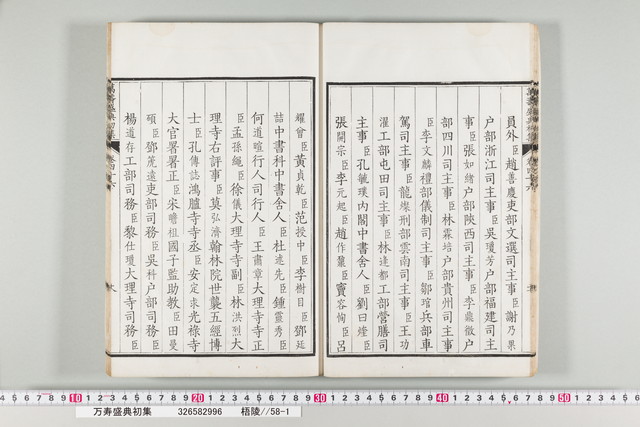 員外臣趙善慶吏部文選司主事臣謝乃果
户部浙江司主事臣吳瓊芳户部福建司主
事臣張如緒户部陝西司主事臣李鼎徵户
部四川司主事臣林霖培户部貴州司主事
臣李文麟禮部儀制司主事臣鄒琯兵部車
駕司主事臣龍燦刑部雲南司主事臣王功
濯工部屯田司主事臣林達都工部營膳司
主事臣孔毓璞内閣中書舍人臣劉曰煃臣
張開宗臣李元起臣趙作霖臣竇容恂臣呂
耀曾臣黃貞乾臣范授中臣李樹目臣鄧廷
詰中書科中書舍人臣杜述先臣鍾震秀臣
何道暄行人司行人臣王肅章大理寺寺正
臣孟孫繩臣徐儀大理寺寺副臣林洪烈大
理寺右評事臣莫弘濟翰林院世襲五經博
士臣孔傳誌鴻臚寺寺丞臣安定求光祿寺
大官署署正臣宋瞻祖國子監助教臣田曼
碩臣鄧篪遠吏部司務臣吳科户部司務臣
楊道存工部司務臣黎仕瓊大理寺司務臣
10 20 30 40 50
万寿盛典初集 326582996 梧陵//58-1